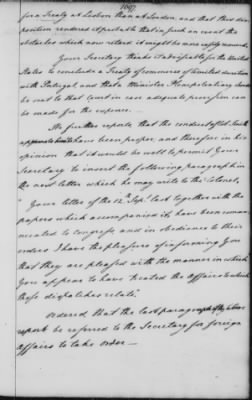 1097
for a Treaty at Lisbon than at London, and that this dis=
position rendered it probable that in such an event the
obstacles which now retard it might be more easily removed.
Your Secretary thinks it advisable for the United
States to conclude a Treaty of commerce of limited duration
with Portugal and that a Minister Plenipotentiary should
be sent to that Court in case adequate provision can
be made for the expence.
He further reports that the conduct of Col. Smith
appears to have been proper, and therefore in his
opinion that it would be well to permit Your
Secretary to insert the following paragraph in
the next letter which he may write to the Colonel,
"Your letter of the 12 Sept. last together with the
papers which accompanied it, have been commu=
nicated to Congress and in obedience to their
orders I have the pleasure of informing You
that they are pleased with the manner in which
You appear to have treated the affairs to which
these dispatches relate."
Ordered, that the last paragraph of the above
report be referred to the Secretary for foreign
affairs to take order—